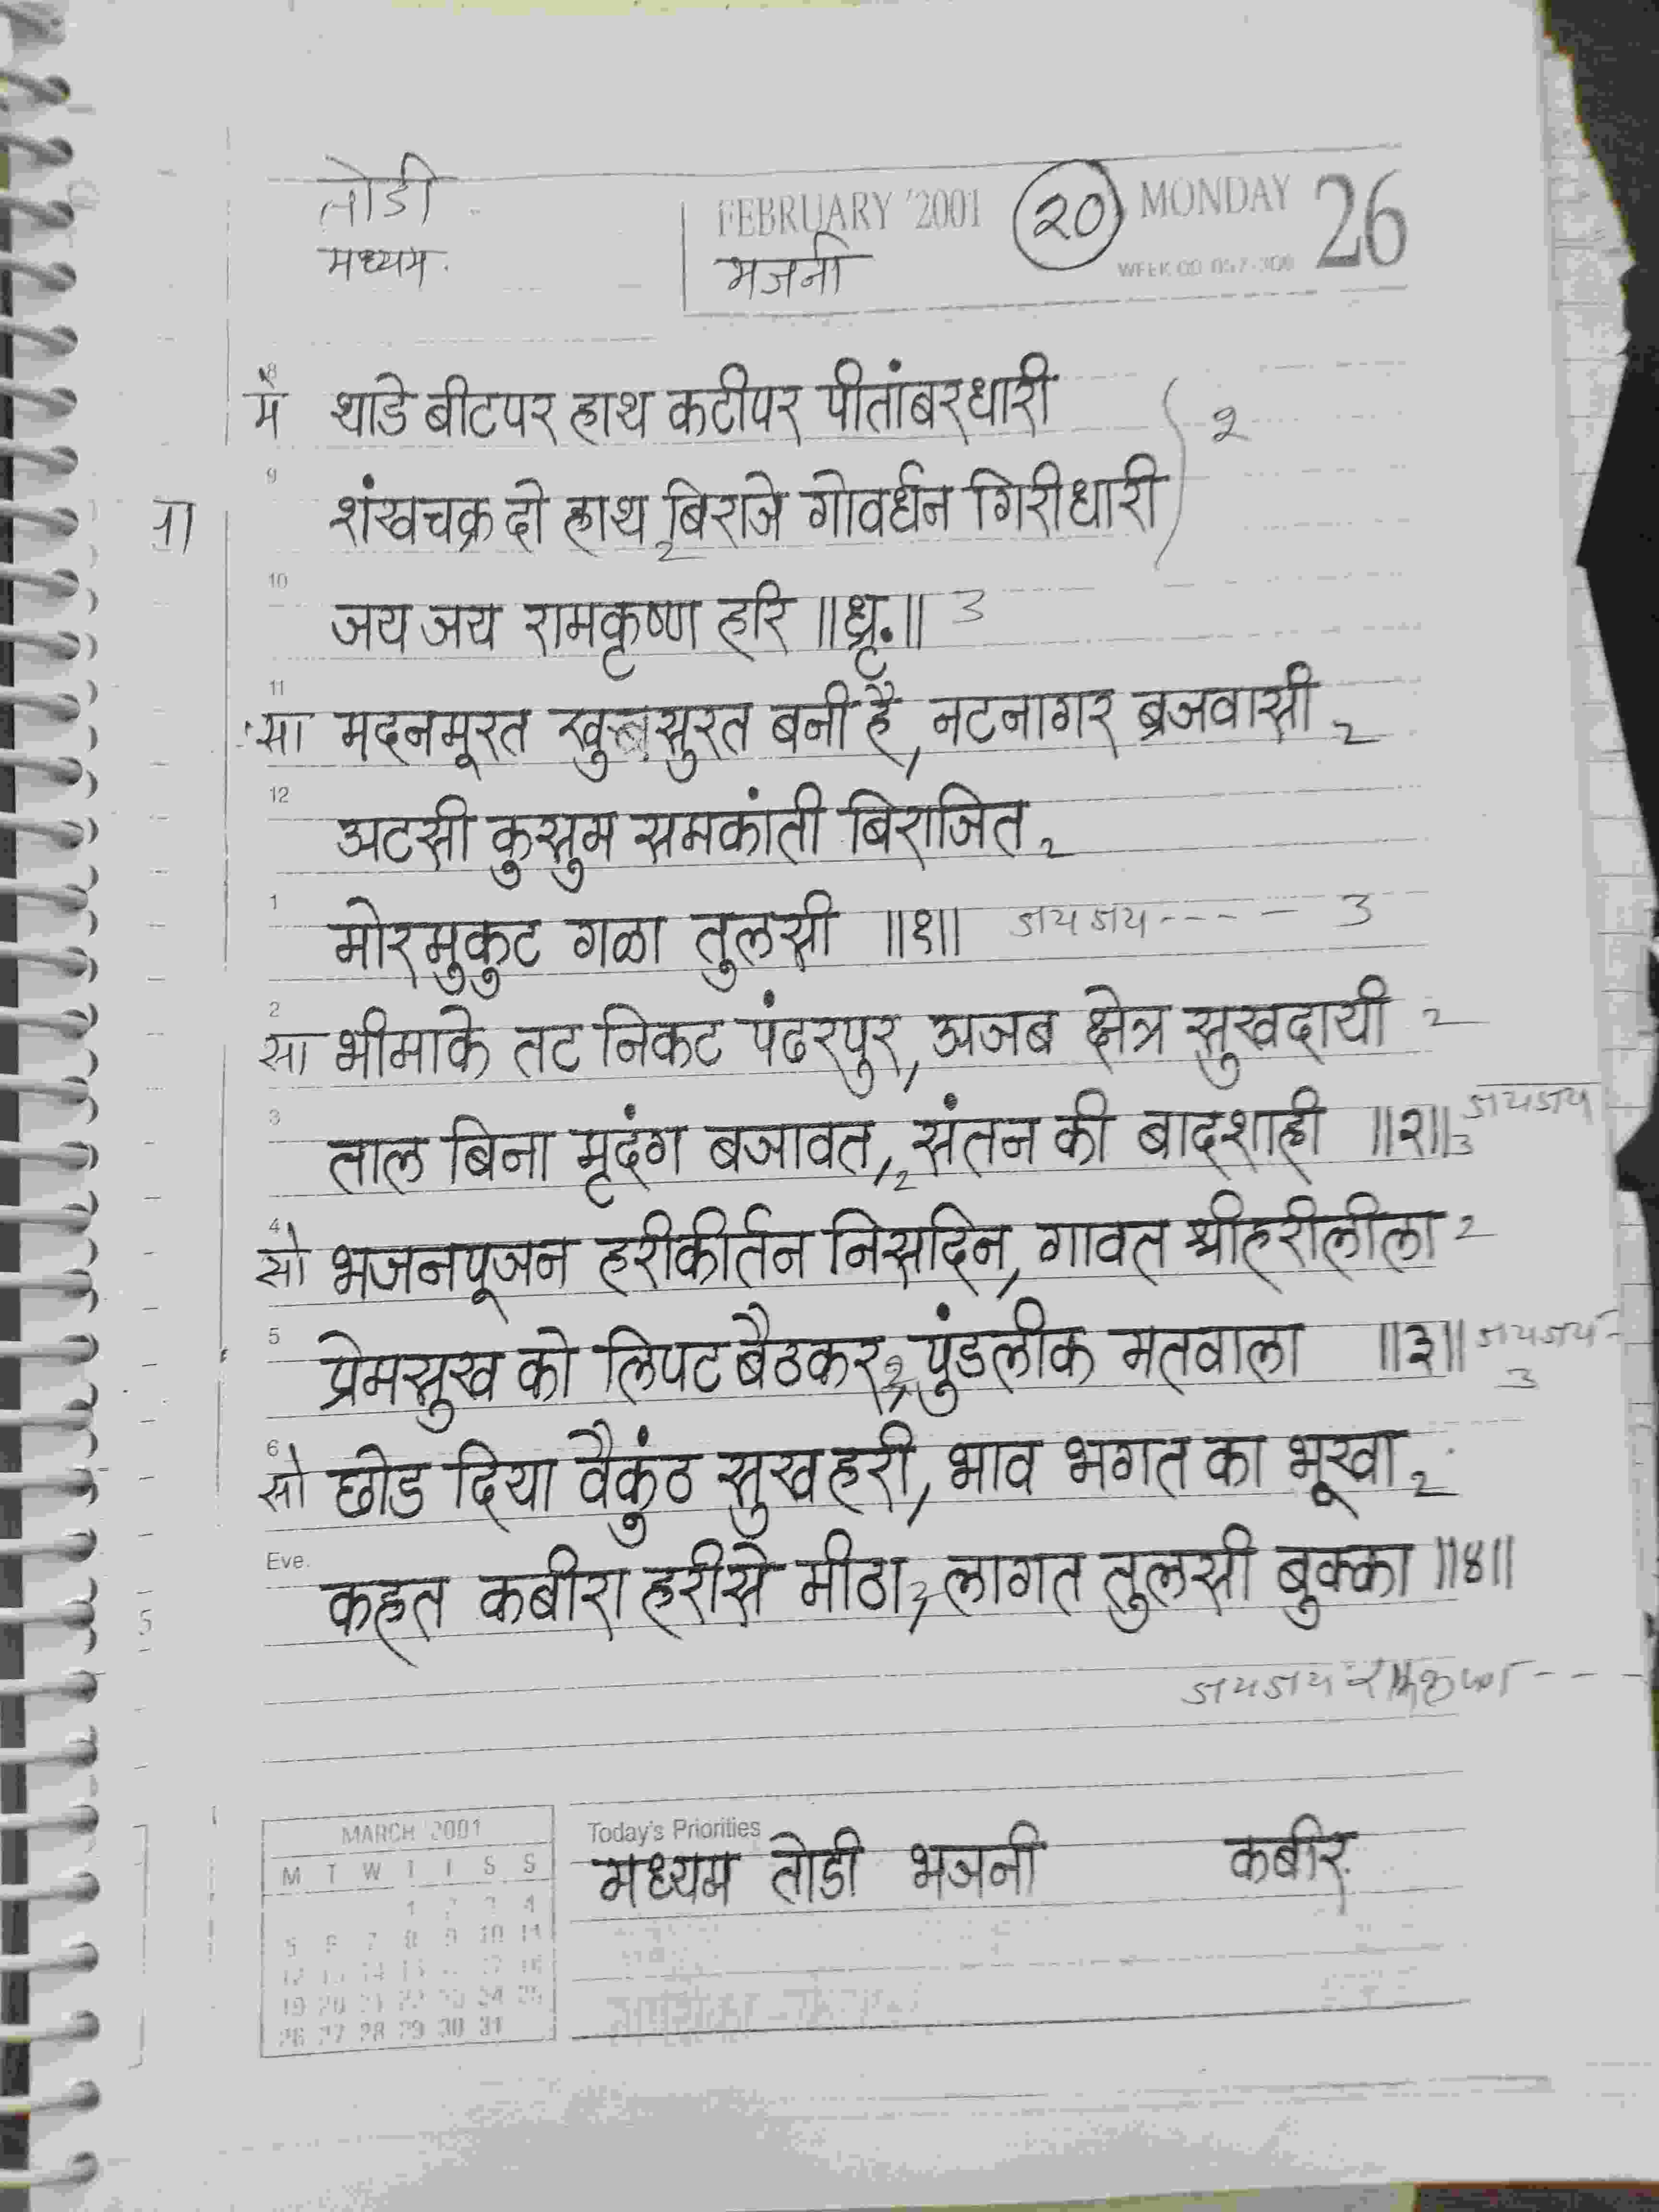 तोडी FEBRUARY '2001 २० MONDAY 26
मध्यम. भजनी WEEK 09 057-308
8
में थाडे बीटपर हाथ कटीपर पीतांबरधारी २
9
शंखचक्र दो हाथ 2 बिराजे गोवर्धन गिरीधारी
10
जय जय रामकृष्ण हरि ॥ध्रृ.॥ 3
11
सा मदनमूरत खुबसुरत बनी है, नटनागर ब्रजवासी 2
12
अटसी कुसुम समकांती बिराजित 2
1
मोरमुकुट गळा तुलसी ॥१॥ जयजय ---- 3
2
सा भीमाके तट निकट पंढरपुर, अजब क्षेत्र सुखदायी 2
3
ताल बिना मृदंग बजावत, 2 संतन की बादशाही ॥२॥ 3 जयजय
4
सो भजनपूजन हरीकीर्तन निसदिन, गावत श्रीहरीलीला 2
5
प्रेमसुख को लिपट बैठकर, २ पुंडलीक मतवाला ॥३॥ जयजय -
3
6
सो छोड दिया वैकुंठ सुख हरी, भाव भगत का भूखा 2
Eve.
कहत कबीरा हरीसे मीठा, 2 लागत तुलसी बुक्का ॥४॥
5
जयजय रामकृष्ण ---
MARCH '2001 Today's Priorities
M T W T F S S
मध्यम तोडी भजनी कबीर.
1 2 3 4
5 6 7 8 9 10 11
19 20 21 22 23 24 25
26 27 28 29 30 31